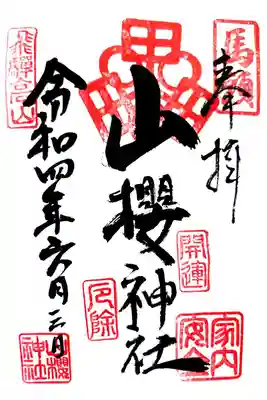 馬頭
奉拝
開運
家内
安全
山櫻神社
厄除
飛驒高山
令和四年六月三日
山櫻
神社